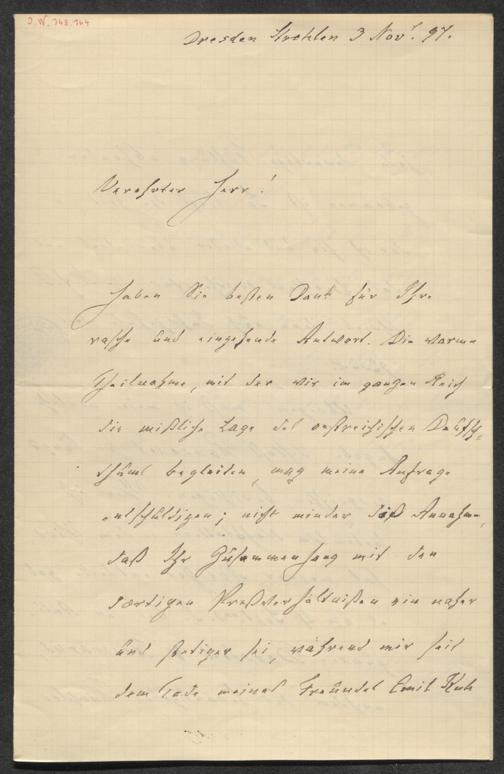 I.N. 148.144
Dresden Strehlen 3 Nov. 97.
Verehrter Herr!
Haben Sie besten Dank für Ihre
rasche und eingehende Antwort. Die warme
Theilnahme, mit der wir im ganzen Reich
die mißliche Lage des oestreichischen Deutsch-
thums begleiten, mag meine Anfrage
entschuldigen; nicht minder die Annahme,
daß Ihr Zusammenhang mit den
dortigen Preßverhältnißen ein naher
und stetiger sei, während mir seit
dem Tode meines Freundes Emil Kuh